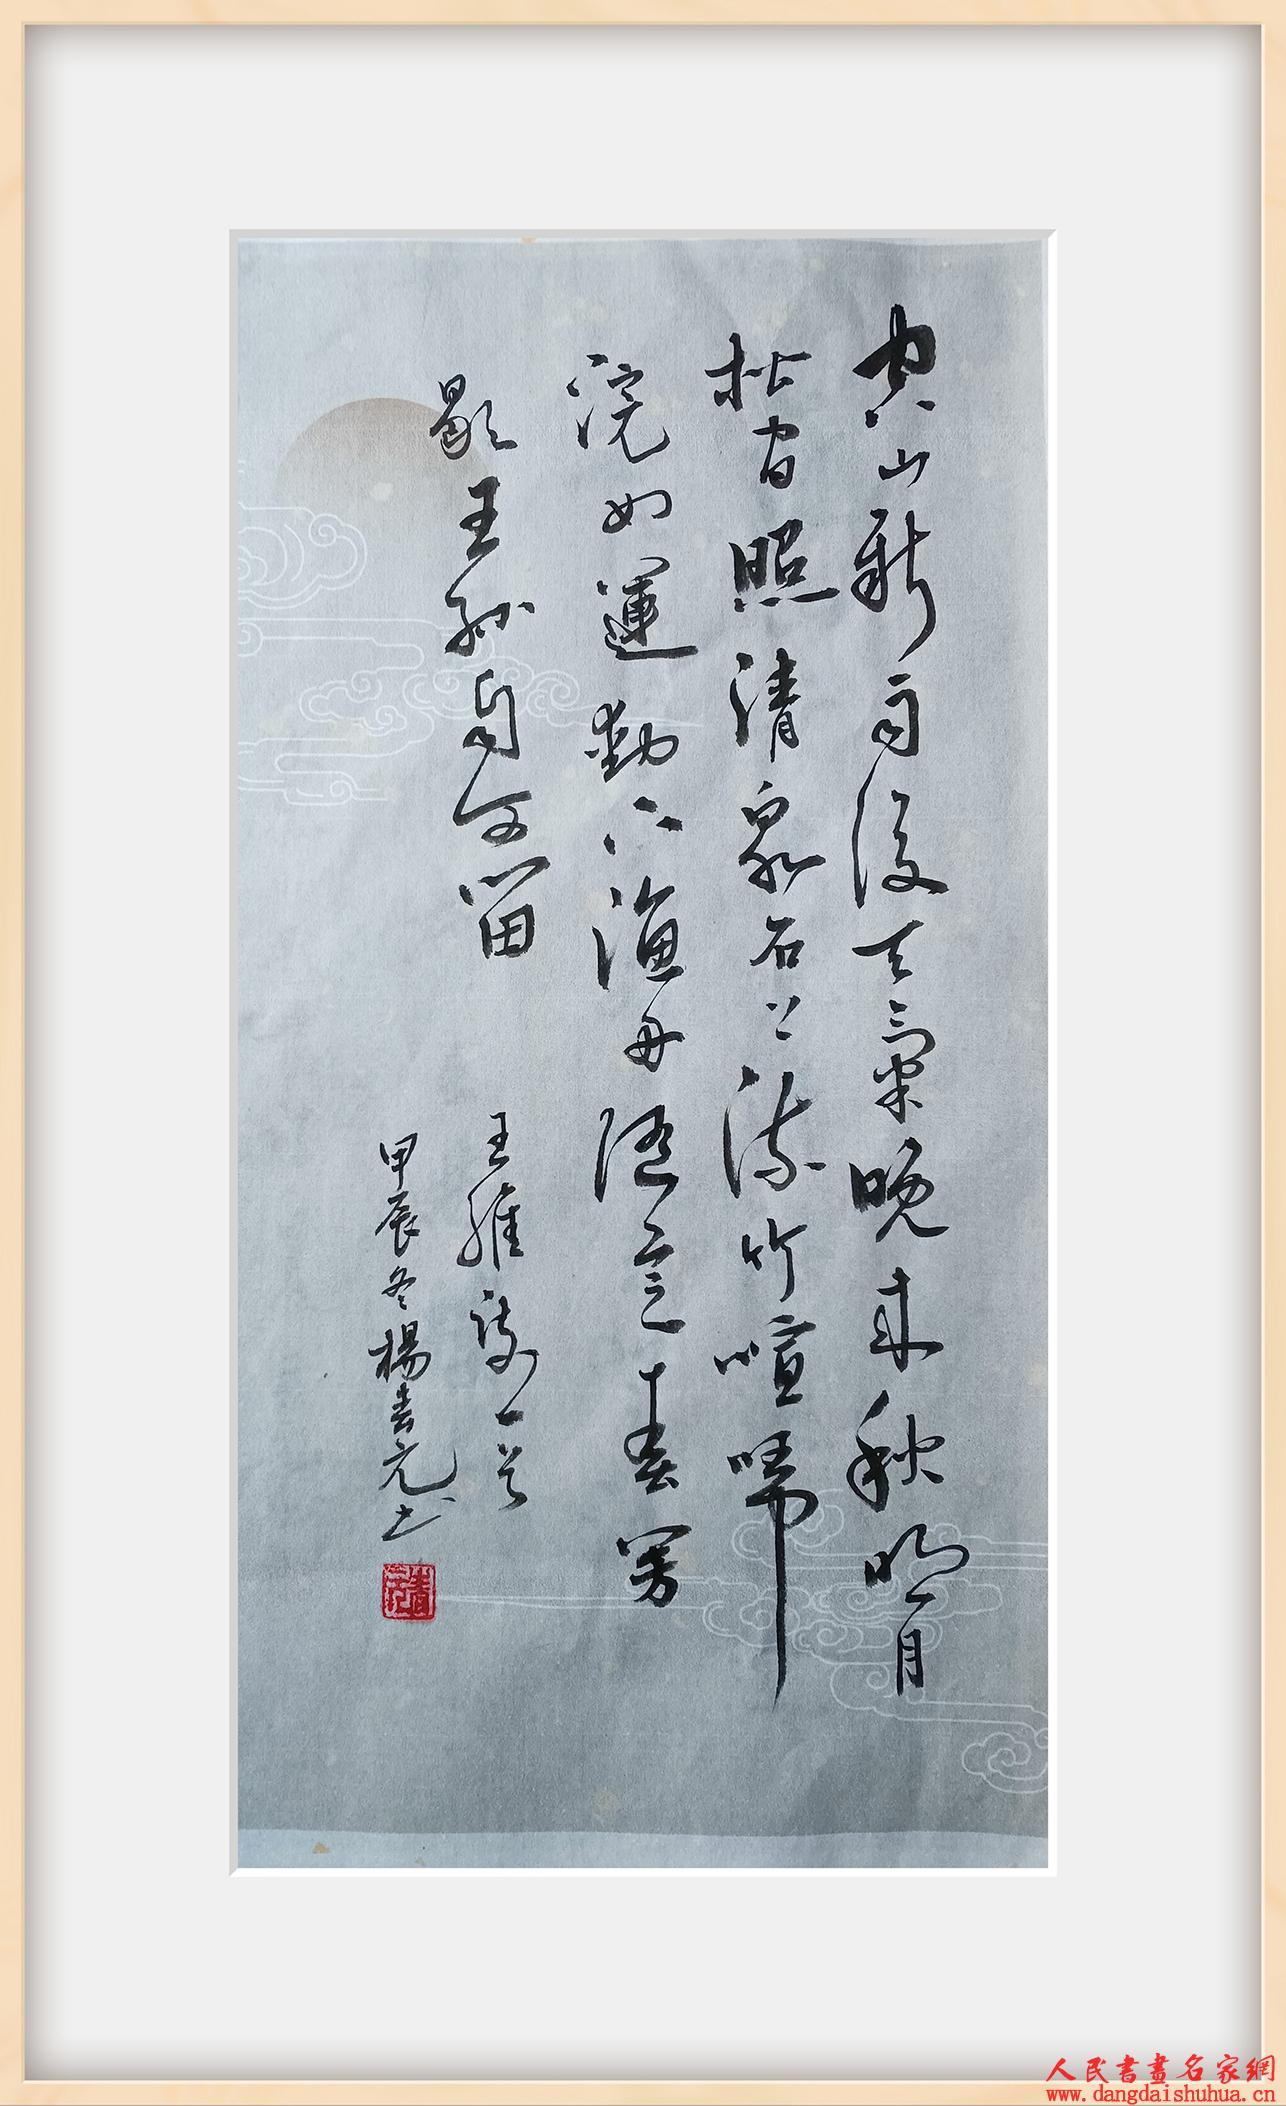 空山新雨後天氣晚來秋明月
松間照清泉石上流竹喧歸
浣女蓮動下漁舟隨意春芳
歇王孫自可留
王維詩一首
甲辰冬楊春元书
人民書畫名家網
www.dangdaishuhua.cn